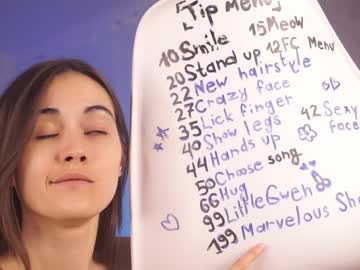 [Tip Menu]
10 Smile 15 Meow
20 Stand up 12 FC Menu
22 New hairstyle
27 Crazy face
35 Lick finger
40 Show legs 42 Sexy face
44 Hands up
50 Choose song
66 Hug
99 Little Gweh
199 Marvelous Sho